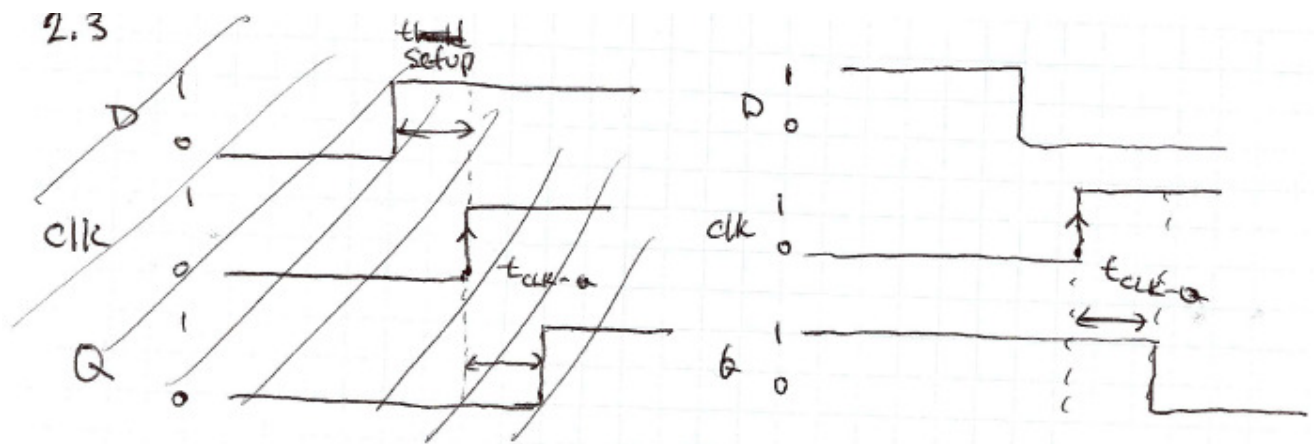 2.3
setup
D 1 0
clk 1 0
t_CLK-Q
Q 1 0
D 1 0
clk 1 0
t_CLK-Q
Q 1 0